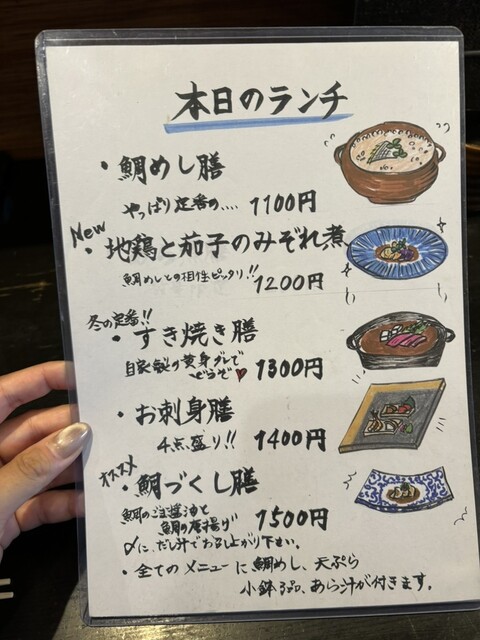 本日のランチ
・鯛めし膳
やっぱり定番の.... 1100円
New
・地鶏と茄子のみぞれ煮
鯛めしとの相性ピッタリ!! 1200円
冬の定番!!
・すき焼き膳
自家製の黄身ダレで
どうぞ♥ 1300円
・お刺身膳
4点盛り!! 1400円
オススメ
・鯛づくし膳
鯛のごま醤油と
鯛の唐揚げ 1500円
〆に、だし汁でお召し上がり下さい。
・全てのメニューに鯛めし、天ぷら
小鉢3品、あら汁が付きます。